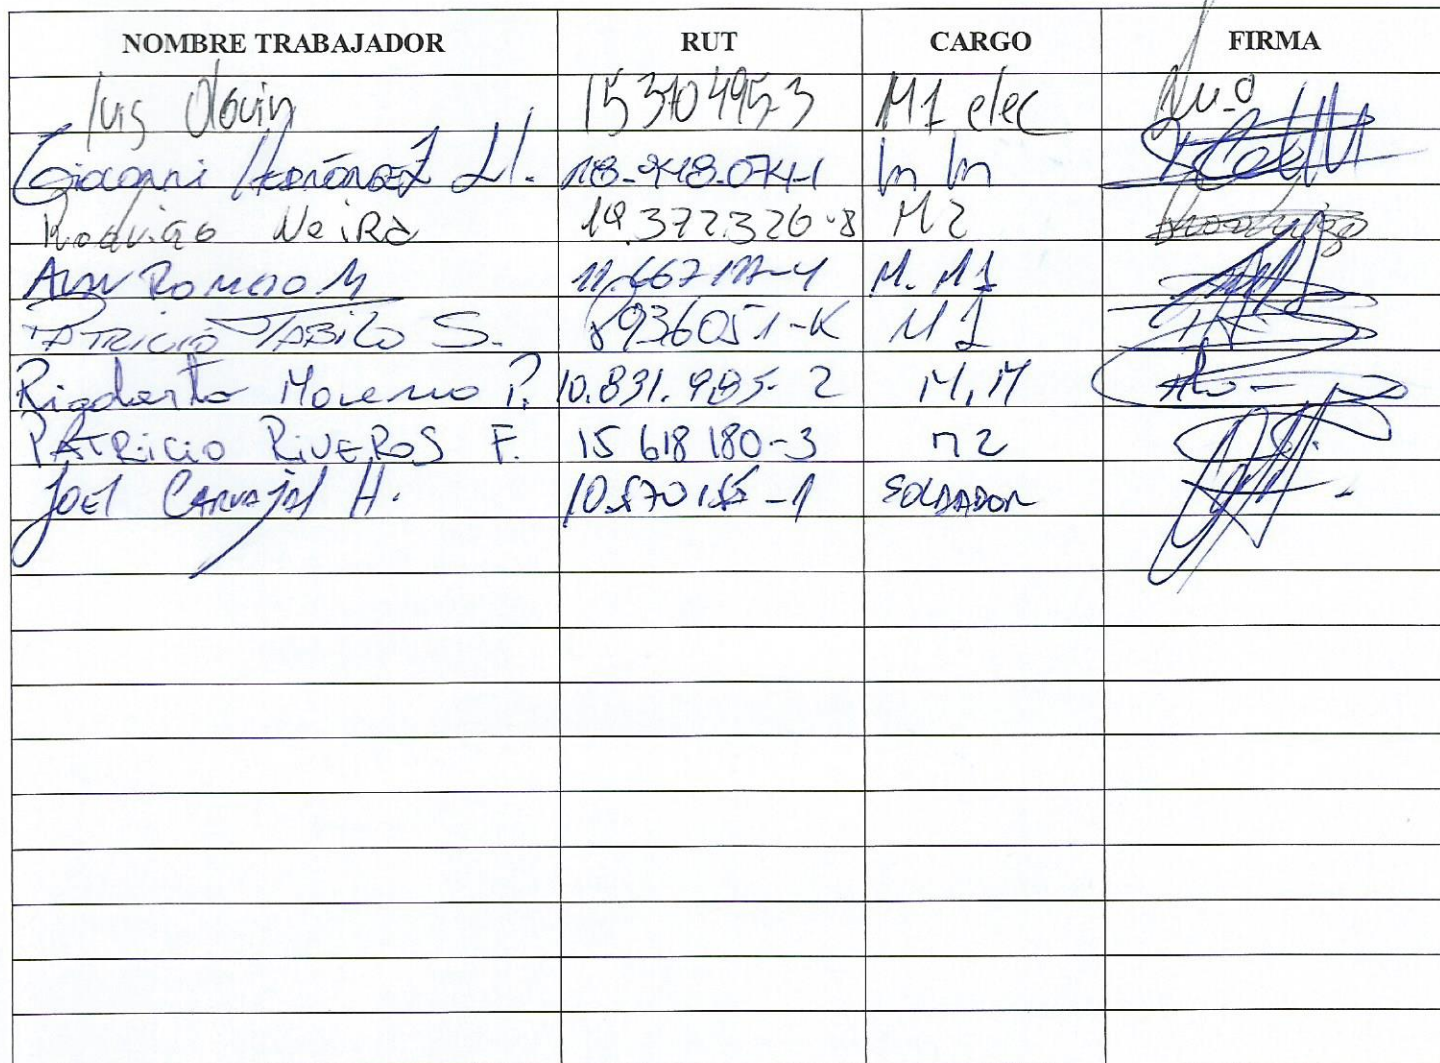 NOMBRE TRABAJADOR RUT CARGO FIRMA
Luis Olguin 15310495-3 M1 elec
Giovanni Hernández Ll. M M
Rodrigo Neira 19.372.326-8 M2
Romero M M. M1
PATRICIO TABILO S. 8936051-K M1
Rigoberto Moreno P. 10.831.985-2 M.M
PATRICIO RIVEROS F. 15 618 180-3 M2
JOEL CARVAJAL H. SOLDADOR